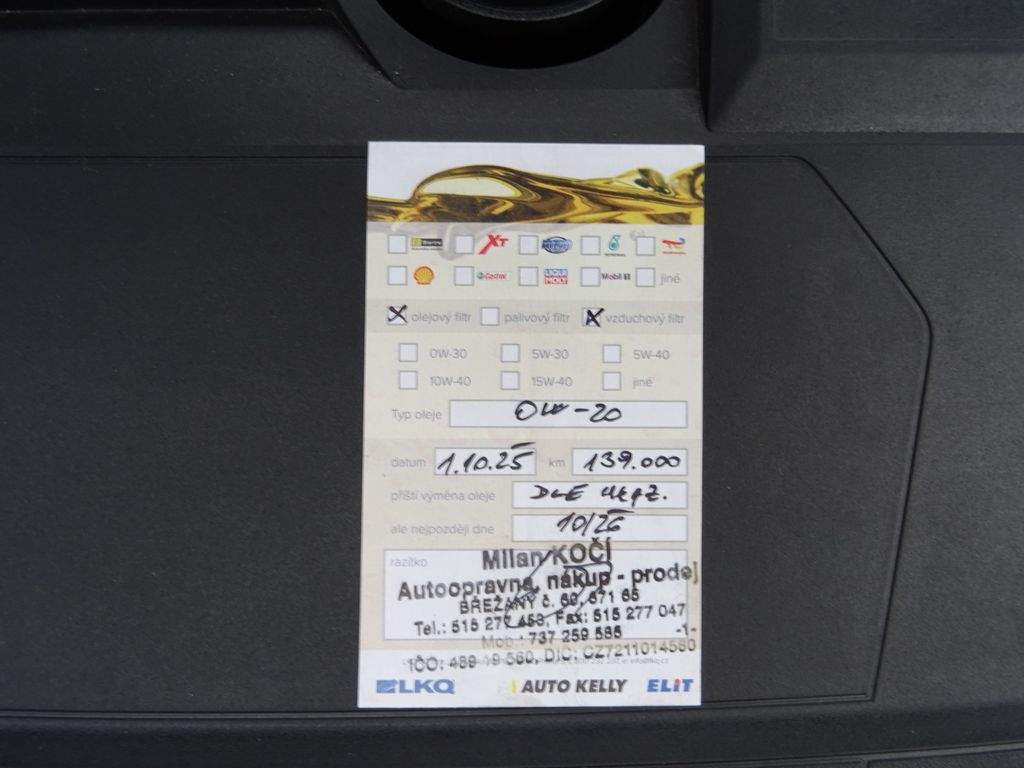 XT
Castrol LIQUI MOLY Mobil 1 jiné
olejový filtr palivový filtr vzduchový filtr
0W-30 5W-30 5W-40
10W-40 15W-40 jiné
Typ oleje 0W-20
datum 1.10.25 km 139.000
příští výměna oleje DLE
ale nejpozději dne 10/26
razítko
Milan KOČÍ
Autoopravna, nákup - prodej
BŘEŽANY č. 60, 671 65
Tel.: 515 277 453, Fax: 515 277 047
Mob.: 737 259 585 -1-
IČO: 489 19 560, DIČ: CZ7211014580
LKQ AUTO KELLY ELIT